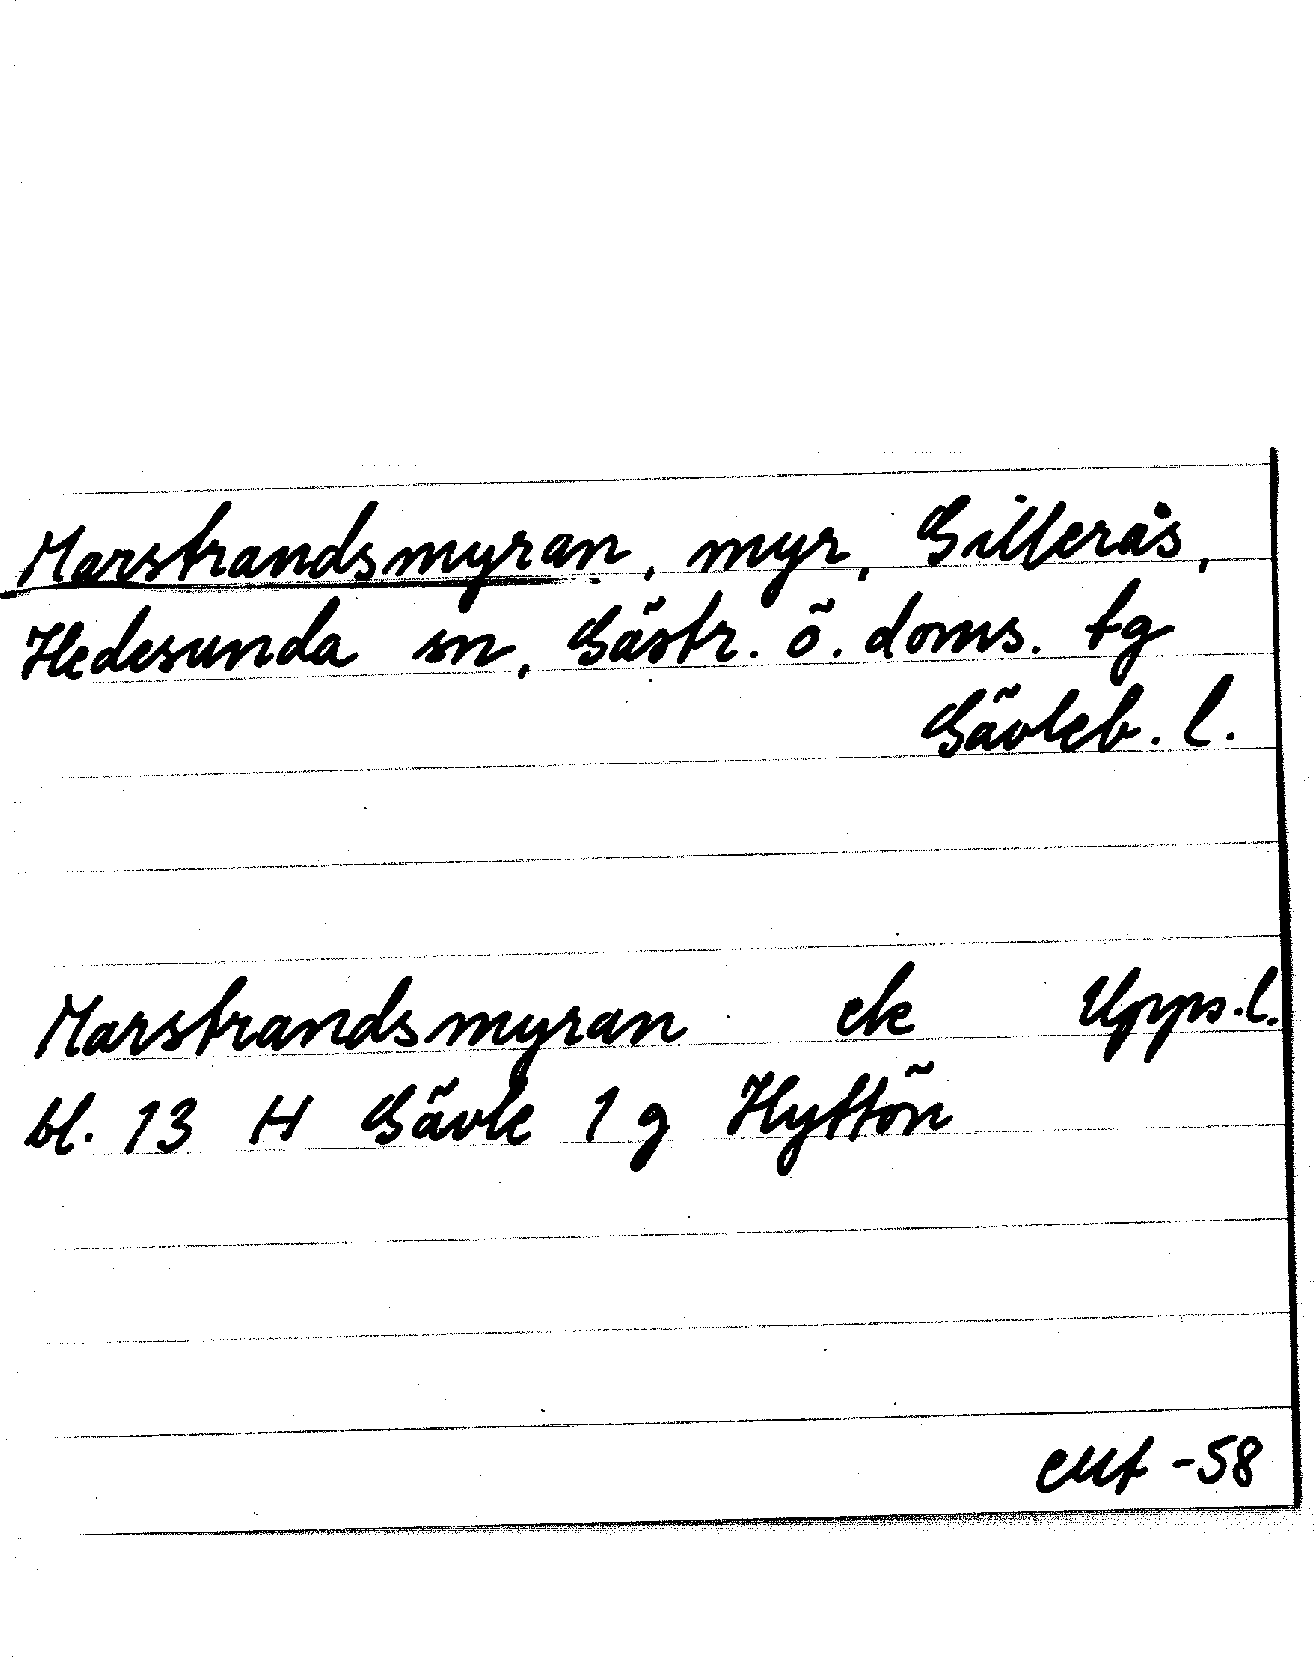 Marstrandsmyran, myr, Gillerås,
Hedesunda sn, Gästr. ö. doms. tg
Gävleb. l.
Marstrandsmyran ek Upps. l.
bl. 13 H Gävle 1 g Hyttön
-58